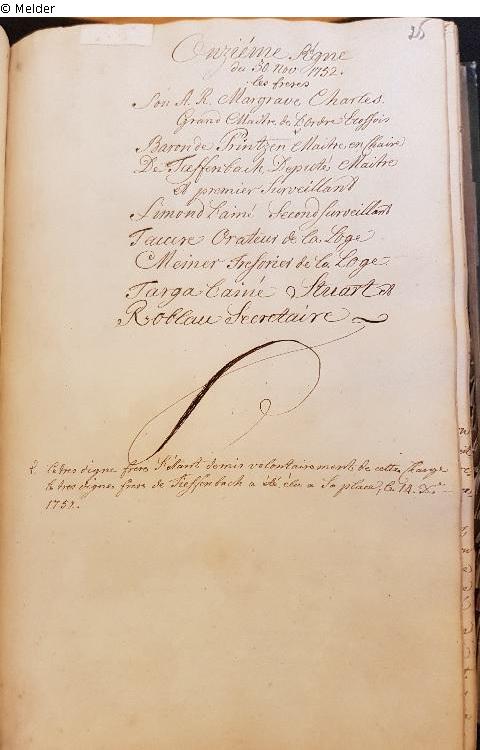 © Melder
25
Onziéme Régne
du 30. Nov. 1752.
les freres
Son A. R. Margrave Charles.
Grand Maitre de L'ordre Ecossois
Baron de Printzen Maitre en Chaire
De Tieffenbach Deputé Maitre
et premier Surveillant
Simond l'ainé Second Surveillant
Faucre Orateur de la Loge
Meiner Tresorier de la Loge
Targa l'ainé Stuart et
Roblau Secretaire
le tres digne frere S'étant demis volontairement de cette Charge
le tres digne frere de Tieffenbach a été élu a Sa place, le 14. Xbr
1752.